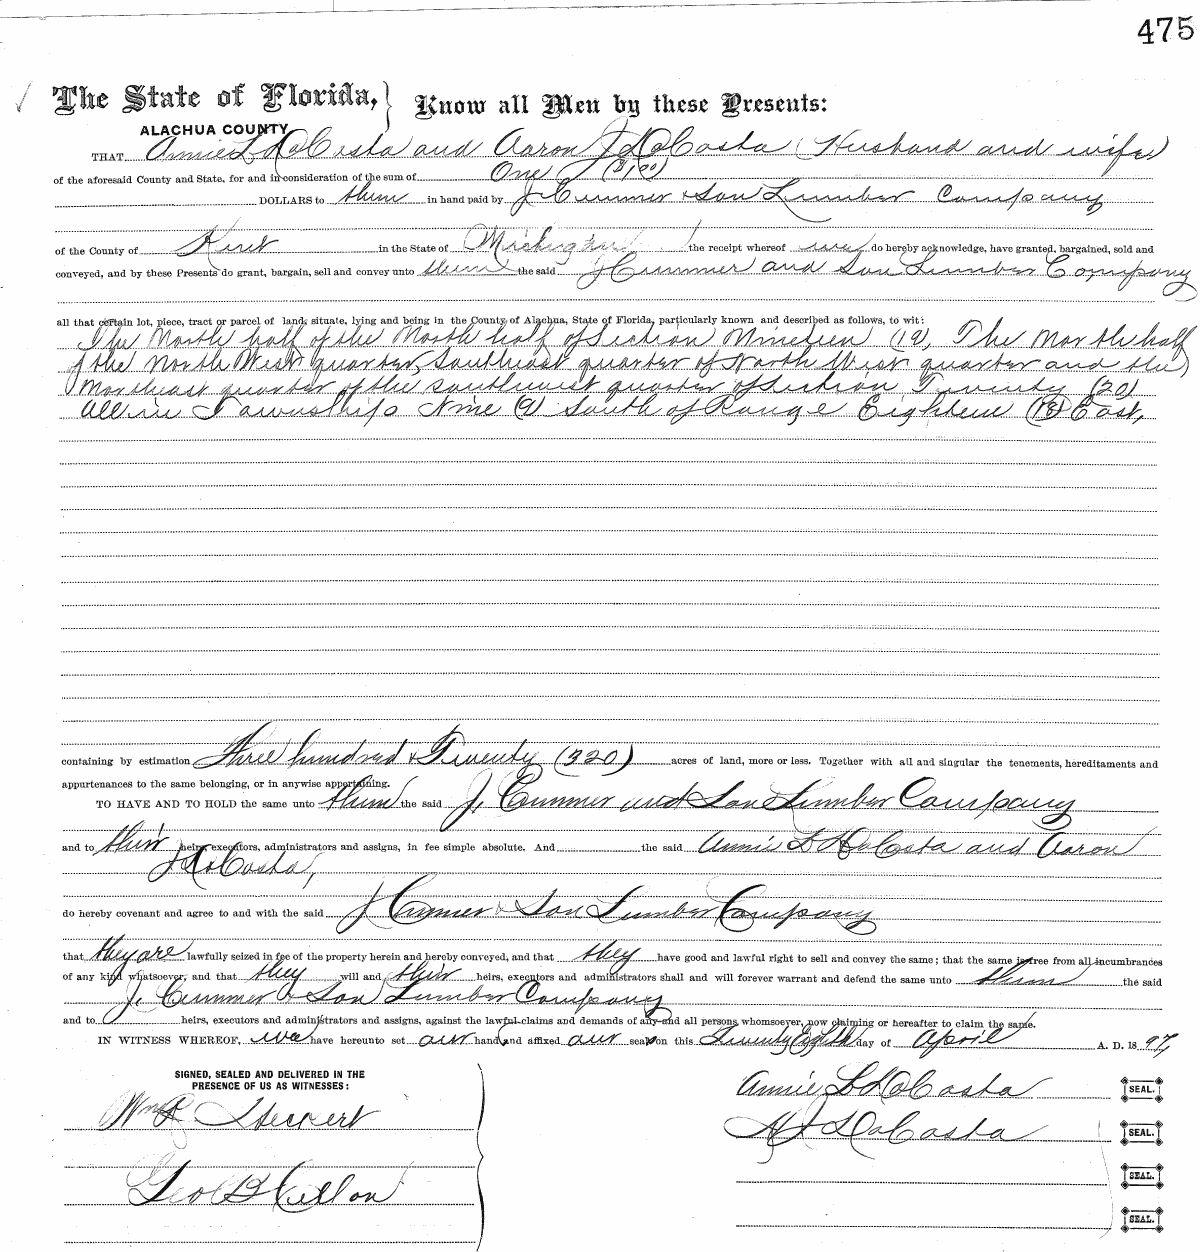 475
The State of Florida, } Know all Men by these Presents:
ALACHUA COUNTY
THAT Annie L DaCosta and Aaron J DaCosta (Husband and wife)
of the aforesaid County and State, for and in consideration of the sum of One ($1,00)
DOLLARS to them in hand paid by J Cummer & Son Lumber Company
of the County of Kent in the State of Michigan the receipt whereof we do hereby acknowledge, have granted, bargained, sold and
conveyed, and by these Presents do grant, bargain, sell and convey unto them the said J Cummer and Son Lumber Company
all that certain lot, piece, tract or parcel of land, situate, lying and being in the County of Alachua, State of Florida, particularly known and described as follows, to wit:
The North half of the North half of Section Nineteen (19), The North half
of the North West quarter, Southeast quarter of North West quarter and the
Northeast quarter of the southwest quarter of Section Twenty (20)
All in Township Nine (9) South of Range Eighteen (18) East,
containing by estimation Three hundred & Twenty (320) acres of land, more or less. Together with all and singular the tenements, hereditaments and
appurtenances to the same belonging, or in anywise appertaining.
TO HAVE AND TO HOLD the same unto them the said J. Cummer and Son Lumber Company
and to their heirs, executors, administrators and assigns, in fee simple absolute. And the said Annie L DaCosta and Aaron
J DaCosta,
do hereby covenant and agree to and with the said J Cummer & Son Lumber Company
that they are lawfully seized in fee of the property herein and hereby conveyed, and that they have good and lawful right to sell and convey the same; that the same is free from all incumbrances
of any kind whatsoever, and that they will and their heirs, executors and administrators shall and will forever warrant and defend the same unto them the said
J. Cummer & Son Lumber Company
and to heirs, executors and administrators and assigns, against the lawful claims and demands of any and all persons whomsoever, now claiming or hereafter to claim the same.
IN WITNESS WHEREOF, we have hereunto set our hand, and affixed our seal on this Twenty Eighth day of April A. D. 18 97,
SIGNED, SEALED AND DELIVERED IN THE
PRESENCE OF US AS WITNESSES:
Annie L DaCosta SEAL.
Wm R
A J DaCosta SEAL.
SEAL.
Geo B
SEAL.